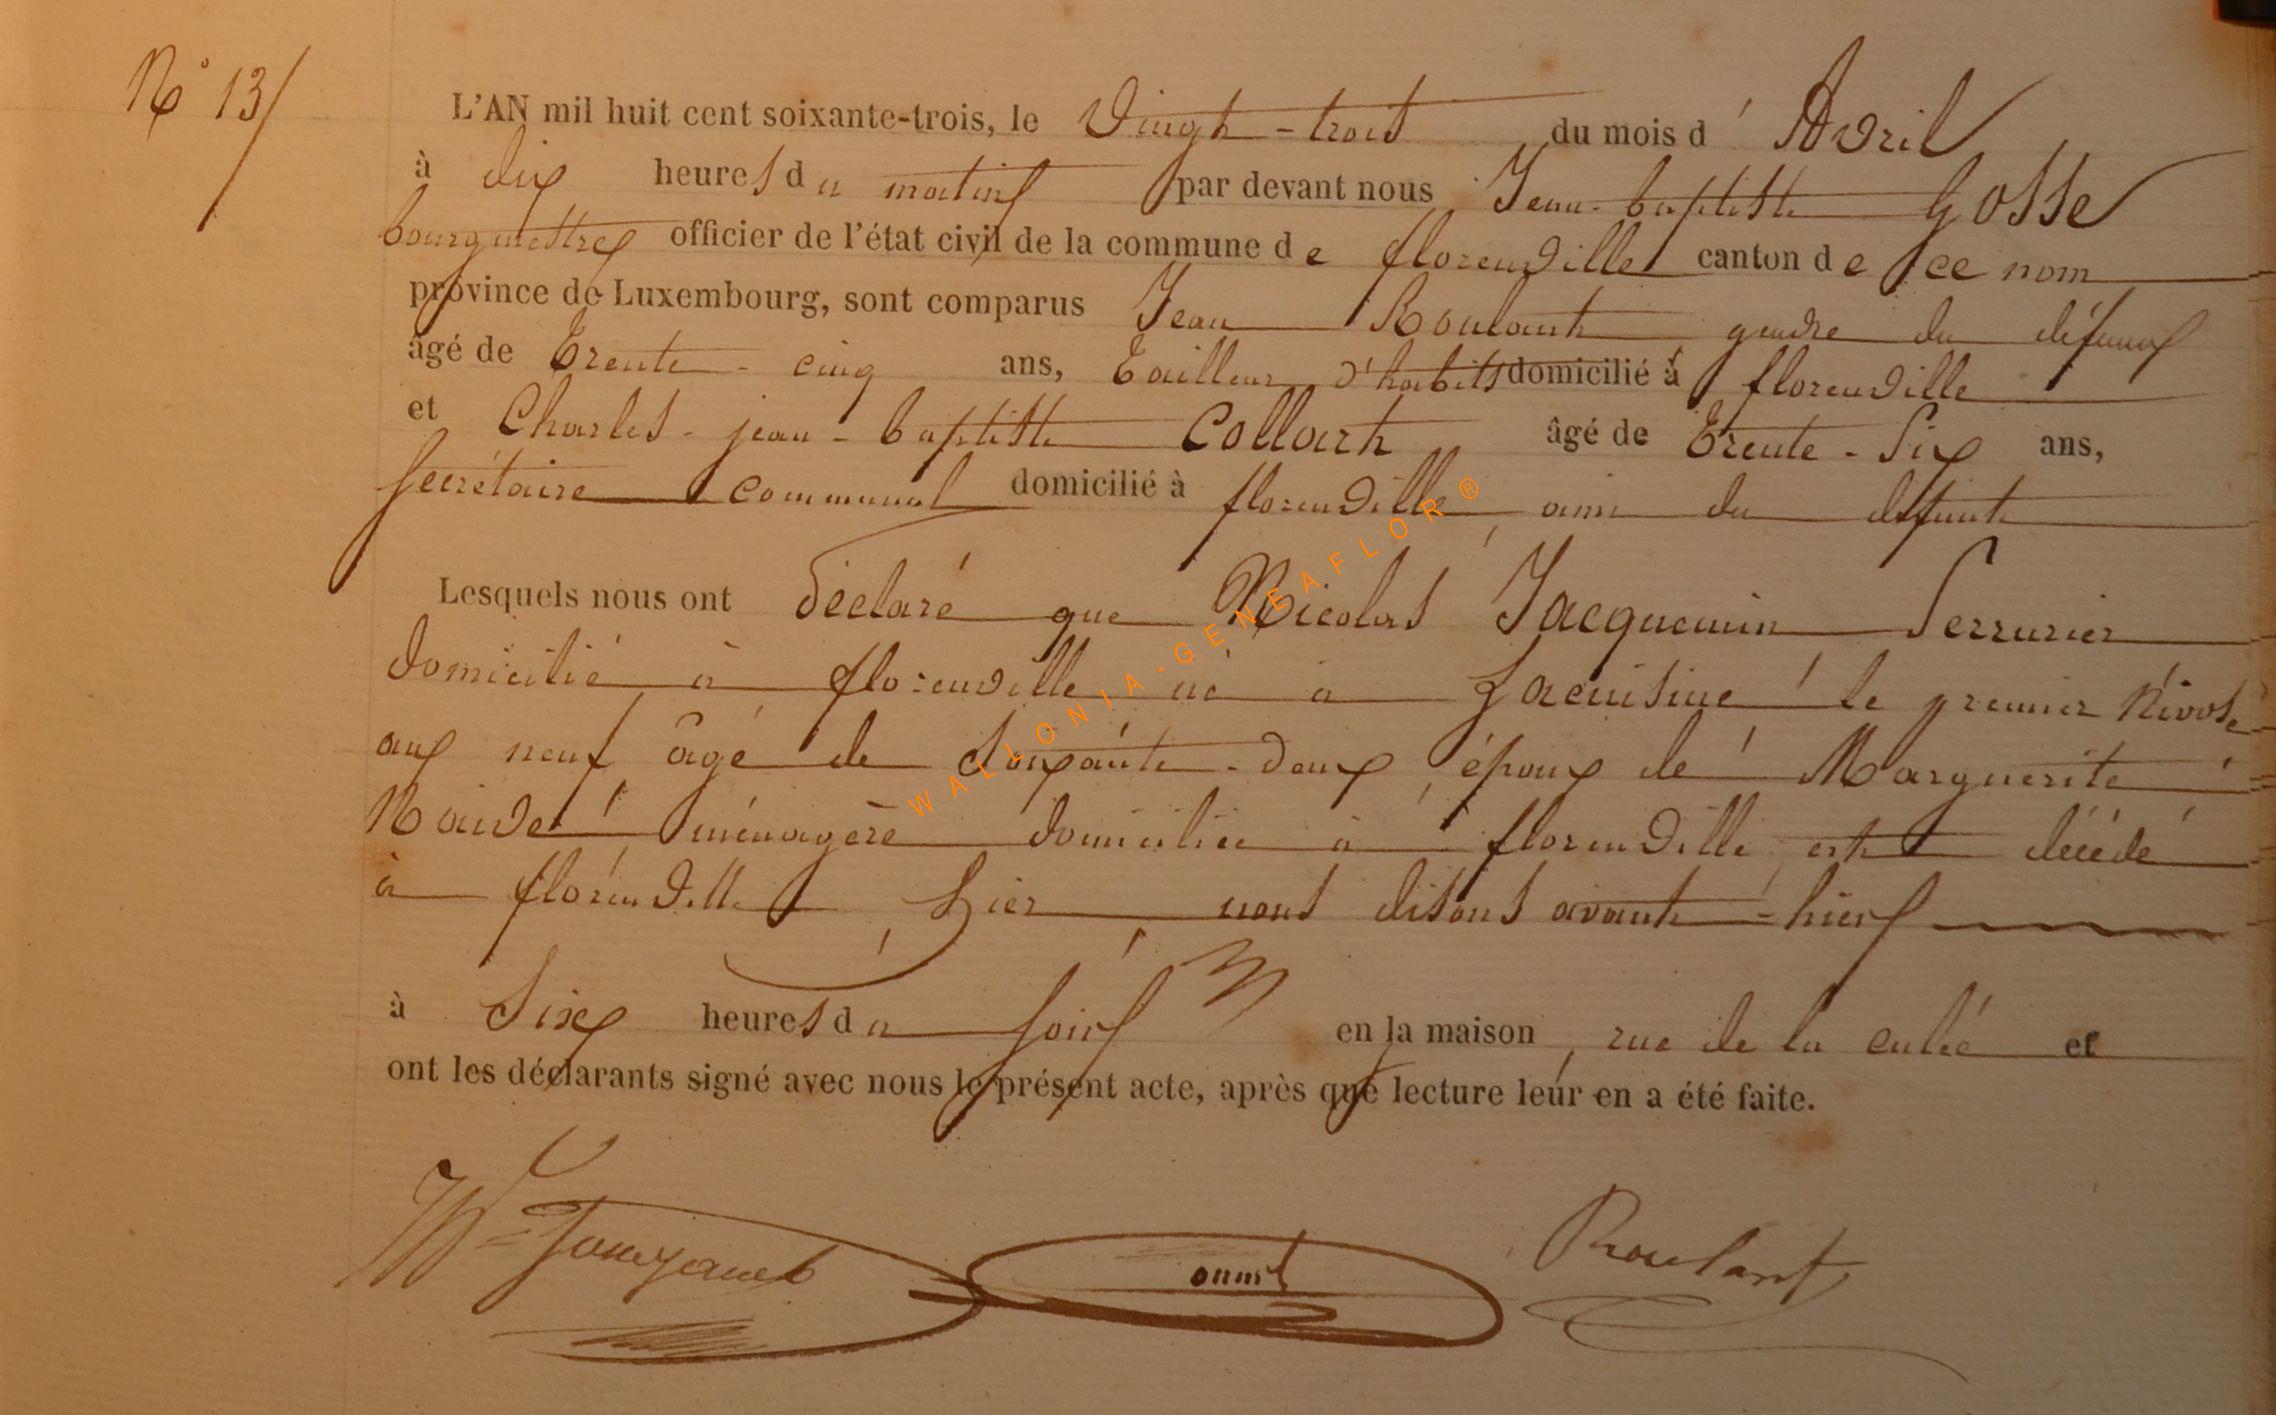 N° 13/
L'AN mil huit cent soixante-trois, le Vingt-trois du mois d'Avril
à dix heures du matin par devant nous Jean-baptiste Gosse
bourgmestre officier de l'état civil de la commune de florenville canton de ce nom
province de Luxembourg, sont comparus Jean Roulant gendre du défunt
âgé de Trente-cinq ans, Tailleur d'habits domicilié à florenville
et Charles-jean-baptiste Collart âgé de Trente-Six ans,
Secrétaire communal domicilié à florenville, ami du défunt
Lesquels nous ont déclaré que Nicolas Jacquemin Serrurier
domicilié à florenville né à Lacuisine le premier Nivose
an neuf âgé de Soixante-deux, époux de Marguerite
ménagère domiciliée à florenville, est décédé
à florenville, hier, nous disons avant-hier
à Six heures du soir en la maison, rue de la culée et
ont les déclarants signé avec nous le présent acte, après que lecture leur en a été faite.
Roulant
WALLONIA-GENEAFLOR ®